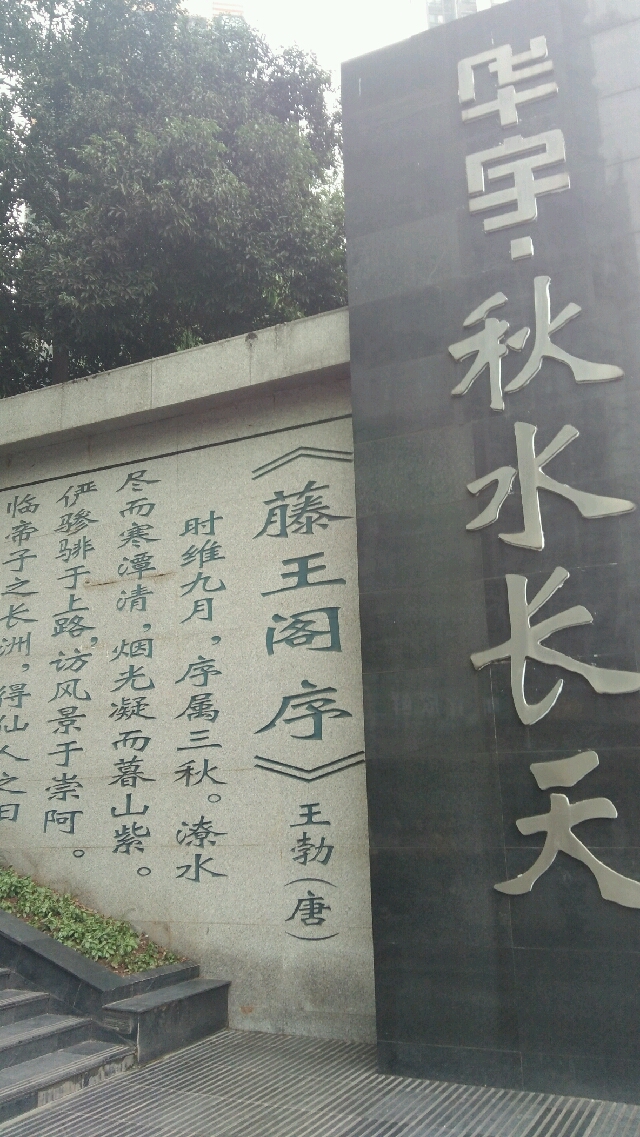 华宇·秋水长天
《藤王阁序》王勃（唐）
时维九月，序属三秋。潦水
尽而寒潭清，烟光凝而暮山紫。
俨骖𬴂于上路，访风景于崇阿。
临帝子之长洲，得仙人之